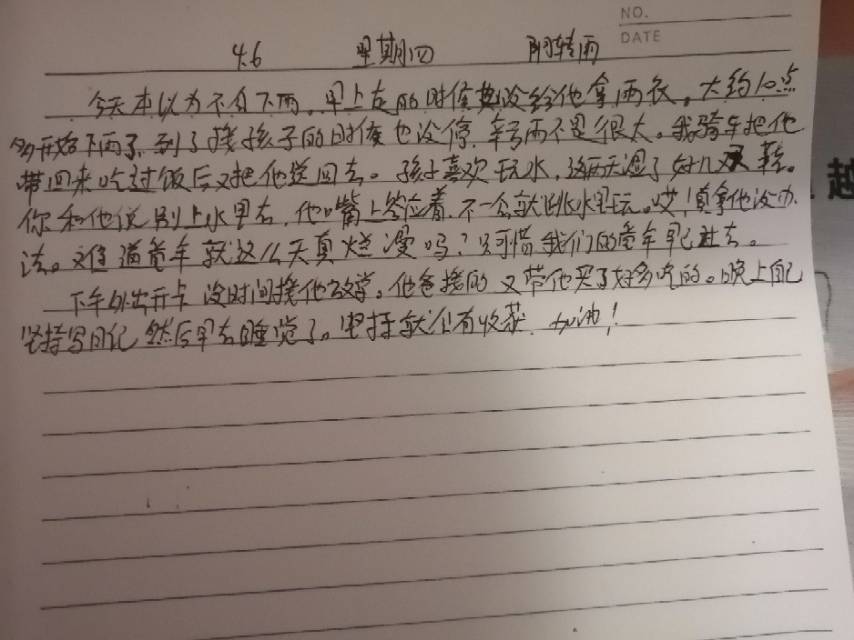 NO.
DATE
4.6 星期四 阴转雨
今天本以为不会下雨,早上走的时候也没给他拿雨衣。大约10点
多开始下雨了,到了接孩子的时候也没停,幸亏雨不是很大。我骑车把他
带回来吃过饭后又把他送回去。孩子喜欢玩水,这两天湿了好几双鞋。
你和他说别上水里去,他嘴上答应着,不一会就跳水里玩。哎!真拿他没办
法。难道童年就这么天真烂漫吗?只可惜我们的童年早已过去。
下午外出开卡 没时间接他放学。他爸接的 又带他买了好多吃的。晚上自己
坚持写日记 然后早点睡觉了。坚持就会有收获,加油!
越